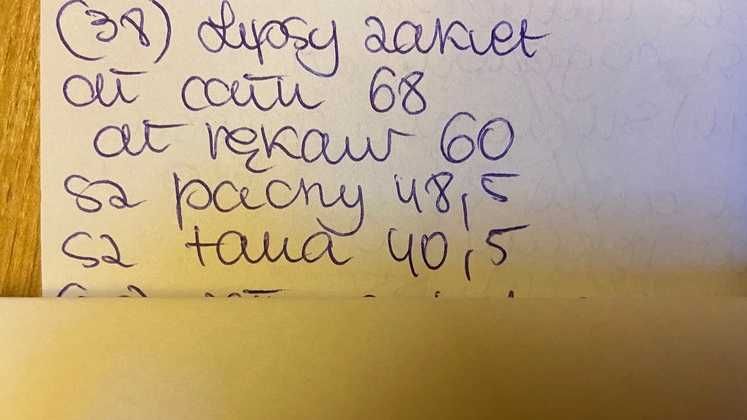 (38) Lipsy zakiet
dł całk 68
dł rękaw 60
sz pachy 48,5
sz talia 40,5